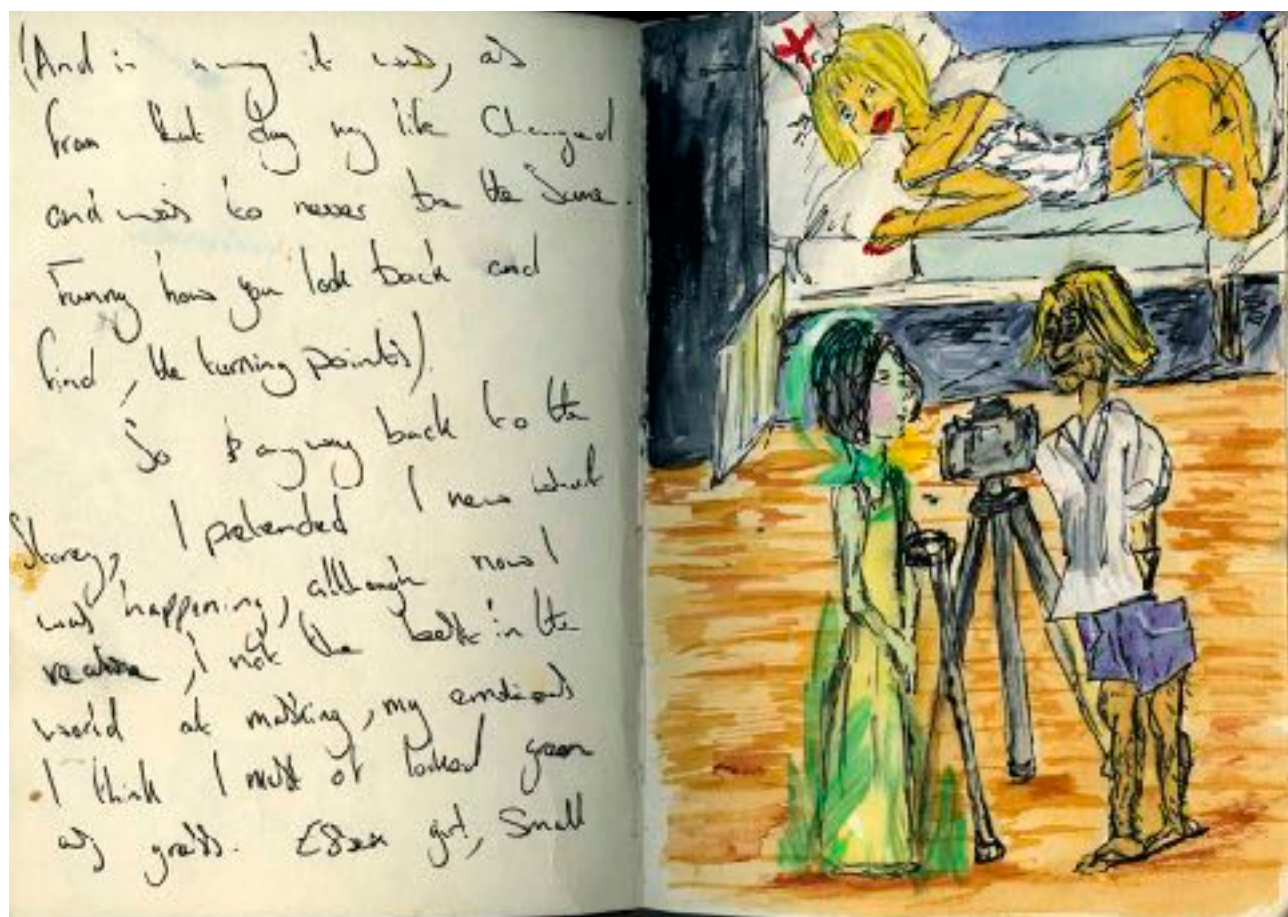 (And in a way it was, as
from that day my life Changed
and was to never be the Same.
Funny how you look back and
find, the turning points).
So anyway back to the
Storey, I pretended I new what
was happening, allthough now I
realise, I not the best in the
world at masking, my emotions
I think I must of looked green
as grass. Essex girl, Small